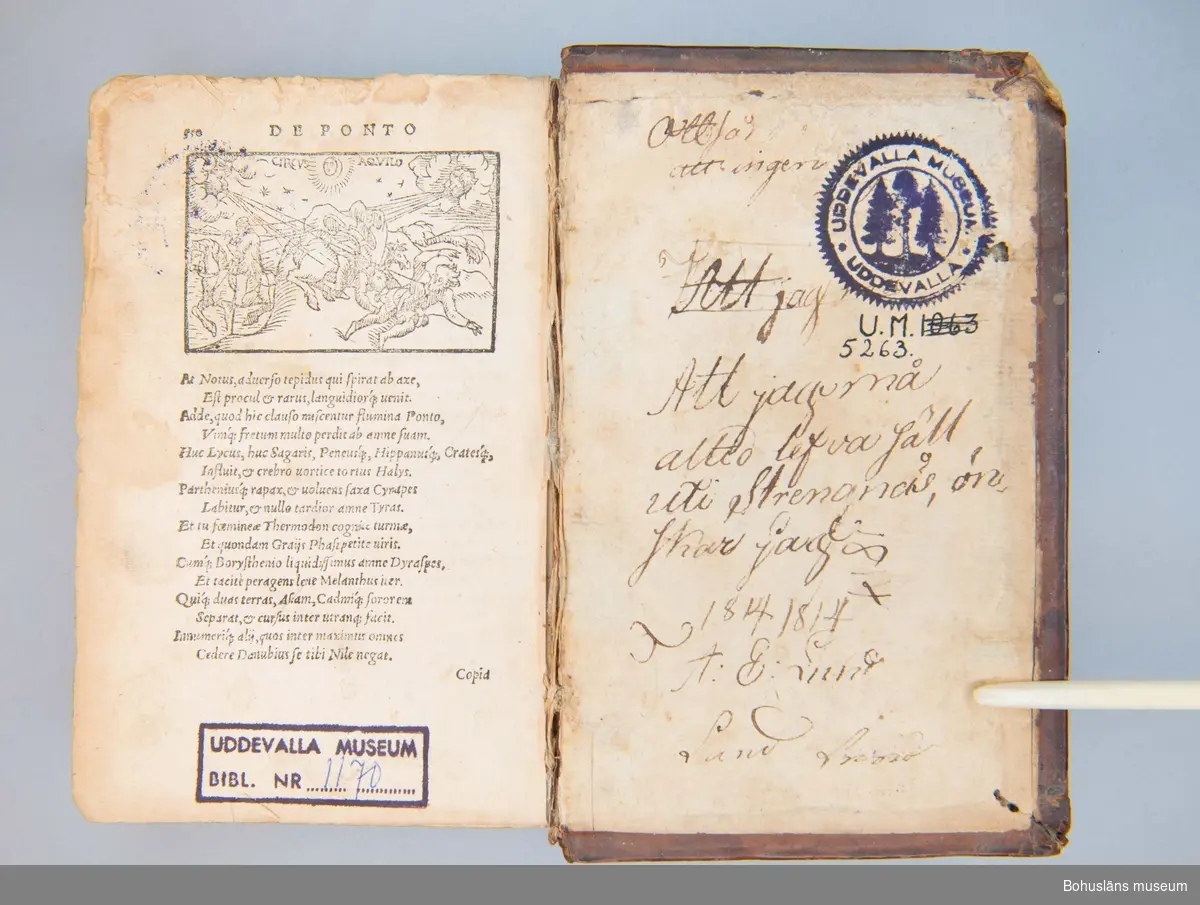 550 DE PONTO
CIRCVS AQVILO
At Notus, aduerso tepidus qui spirat ab axe,
Est procul & rarus, languidiorq́; uenit.
Adde, quod hic clauso miscentur flumina Ponto,
Vimq́; fretum multo perdit ab amne suam.
Huc Lycus, huc Sagaris, Peneusq́;, Hippanusq́;, Cratesq́;,
Influit, & crebro uortice tortus Halys.
Partheniusq́; rapax, & uoluens saxa Cynapes
Labitur, & nullo tardior amne Tyras.
Et tu fœmineæ Thermodon cognite turmæ,
Et quondam Graijs Phasi petite uiris.
Cumq́; Borysthenio liquidissimus amne Dyraspes,
Et tacitè peragens lene Melanthus iter.
Quiq́; duas terras, Asiam, Cadmiq́; sororem
Separat, & cursus inter utranq; facit.
Innumeriq́; alij, quos inter maximus omnes
Cedere Danubius se tibi Nile negat.
Copia
UDDEVALLA MUSEUM
BIBL. NR 1170
att ingen
UDDEVALLA MUSEUM
• UDDEVALLA •
Att jag
U.M. 1063
5263.
Att jag må
altid lefva säll
uti Strengnäs, ön-
skar jag
1814 1814
A: E: Lund
Lund
Bohusläns museum